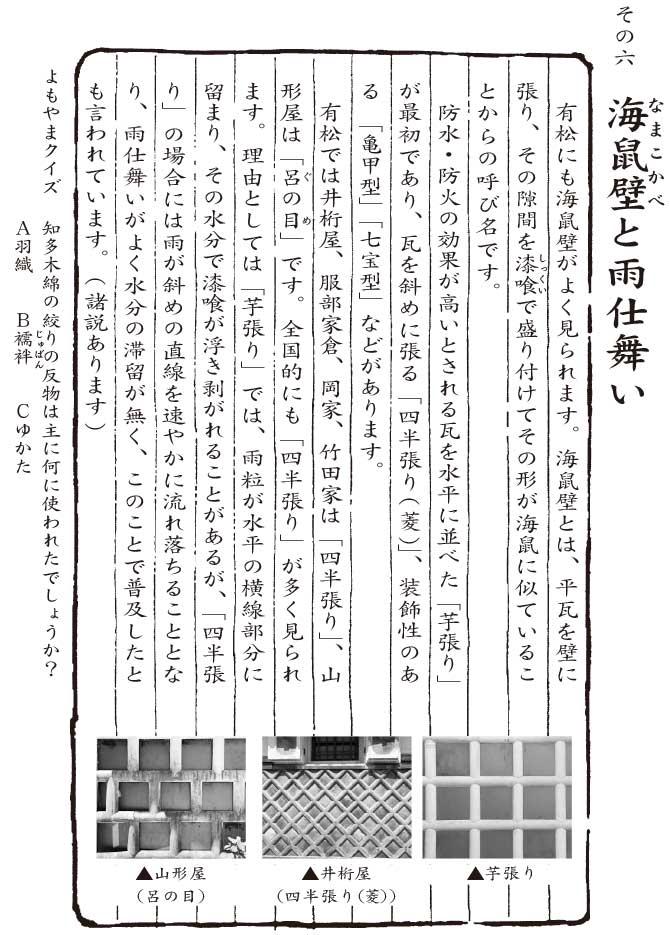 その六
海鼠壁と雨仕舞い
なまこかべ
有松にも海鼠壁がよく見られます。海鼠壁とは、平瓦を壁に
張り、その隙間を漆喰で盛り付けてその形が海鼠に似ているこ
しっくい
とからの呼び名です。
防水・防火の効果が高いとされる瓦を水平に並べた「芋張り」
が最初であり、瓦を斜めに張る「四半張り(菱)」、装飾性のあ
る「亀甲型」「七宝型」などがあります。
有松では井桁屋、服部家倉、岡家、竹田家は「四半張り」、山
形屋は「呂の目」です。全国的にも「四半張り」が多く見られ
ぐ め
ます。理由としては「芋張り」では、雨粒が水平の横線部分に
留まり、その水分で漆喰が浮き剥がれることがあるが、「四半張
り」の場合には雨が斜めの直線を速やかに流れ落ちることとな
り、雨仕舞いがよく水分の滞留が無く、このことで普及したと
も言われています。(諸説あります)
▲芋張り
▲井桁屋
(四半張り(菱))
▲山形屋
(呂の目)
よもやまクイズ 知多木綿の絞りの反物は主に何に使われたでしょうか?
A羽織 B襦袢 Cゆかた
じゅばん